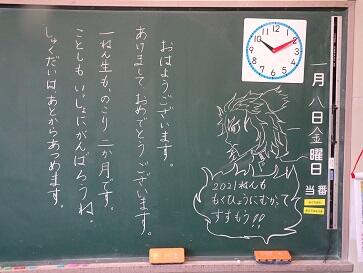 一月八日金曜日
当番
おはようございます。
あけましておめでとうございます。
一ねん生も、のこり三か月です。
ことしもいっしょにがんばろうね。
しゅくだいは、あとからあつめます。
2021ねんも
もくひょうにむかって
すすもう!!